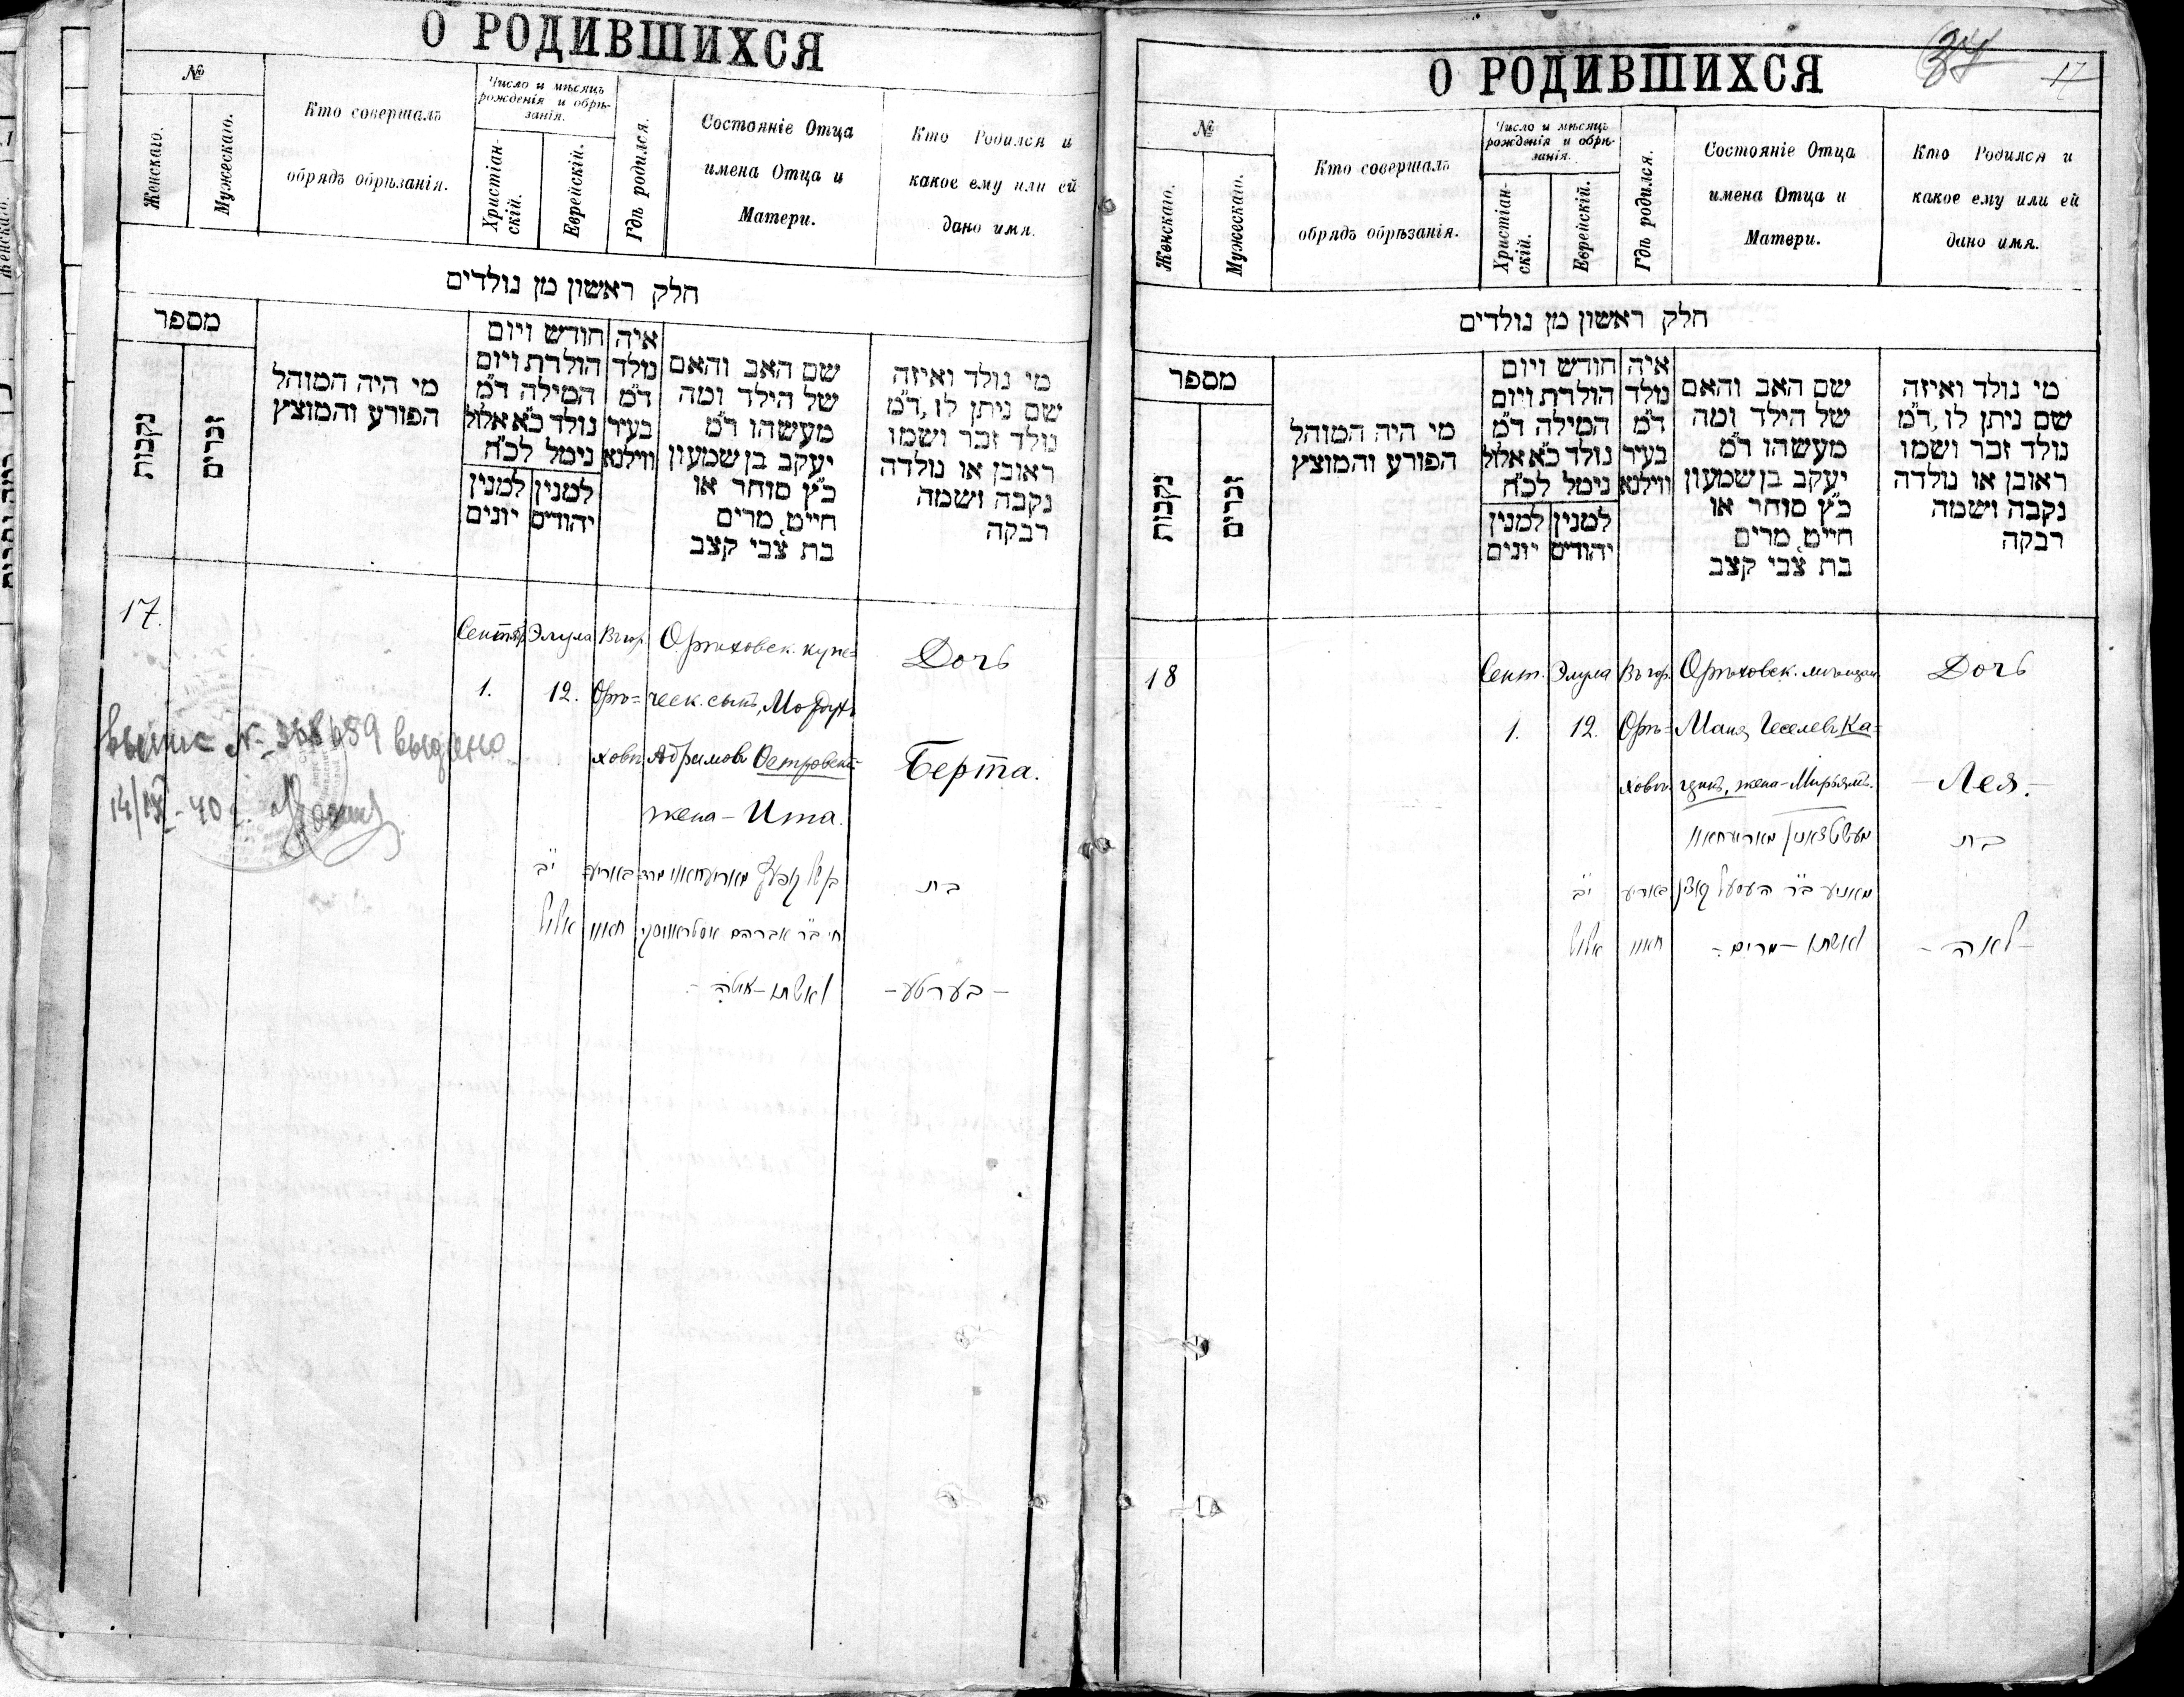 О РОДИВШИХСЯ
№
Женскаго.
Мужескаго.
Кто совершалъ
обрядъ обрѣзанія.
Число и мѣсяцъ
рожденія и обрѣ-
занія.
Христіан-
скій.
Еврейскій.
Гдѣ родился.
Состояніе Отца
имена Отца и
Матери.
Кто Родился и
какое ему или ей
дано имя.
חלק ראשון מן נולדים
מספר
נקבות
זכרים
מי היה המוהל
הפורע והמוצץ
חודש ויום
הולדת ויום
המילה ד"מ
נולד כ"א אלול
נימל לכ"ח
למנין
יונים
למנין
יהודים
איה
נולד
ד"מ
בעיר
ווילנא
שם האב והאם
של הילד ומה
מעשהו ד"מ
יעקב בן שמעון
כ"ץ סוחר או
חייט, מרים
בת צבי קצב
מי נולד ואיזה
שם ניתן לו, ד"מ
נולד זכר ושמו
ראובן או נולדה
נקבה ושמה
רבקה
17.
Сентяб.
1.
Элула
12.
Въ гор.
Орѣ=
ховѣ
Орѣховск. купе=
ческ. сынъ, Мордухъ
Абрамовъ Островскій
жена - Ита.
Дочь
Берта.
י"ב
אלול
מרדכי ב"ר אברהם
ואשתו - איטה -
בת
- בערטע -
14/IX - 40 г.
О РОДИВШИХСЯ
34
17
№
Женскаго.
Мужескаго.
Кто совершалъ
обрядъ обрѣзанія.
Число и мѣсяцъ
рожденія и обрѣ-
занія.
Христіан-
скій.
Еврейскій.
Гдѣ родился.
Состояніе Отца
имена Отца и
Матери.
Кто Родился и
какое ему или ей
дано имя.
חלק ראשון מן נולדים
מספר
נקבות
זכרים
מי היה המוהל
הפורע והמוצץ
חודש ויום
הולדת ויום
המילה ד"מ
נולד כ"א אלול
נימל לכ"ח
למנין
יונים
למנין
יהודים
איה
נולד
ד"מ
בעיר
ווילנא
שם האב והאם
של הילד ומה
מעשהו ד"מ
יעקב בן שמעון
כ"ץ סוחר או
חייט, מרים
בת צבי קצב
מי נולד ואיזה
שם ניתן לו, ד"מ
נולד זכר ושמו
ראובן או נולדה
נקבה ושמה
רבקה
18
Сент.
1.
Элула
12.
Въ гор.
Орѣ=
ховѣ
Орѣховск. мѣщан.
Маня Геселевъ Ка=
цинъ, жена - Мирьямъ.
Дочь
- Лея. -
י"ב
אלול
מאניע ב"ר העסעל קאצין
ואשתו - מרים -
בת
- לאה -